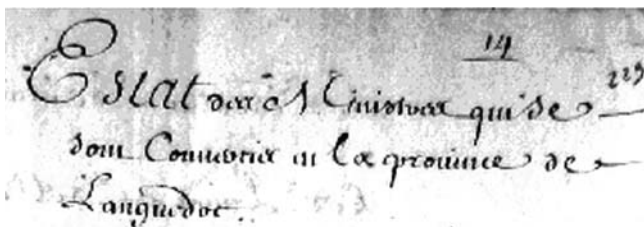 14
Estat des Ministres qui se
sont Convertis en la province de
Languedoc.